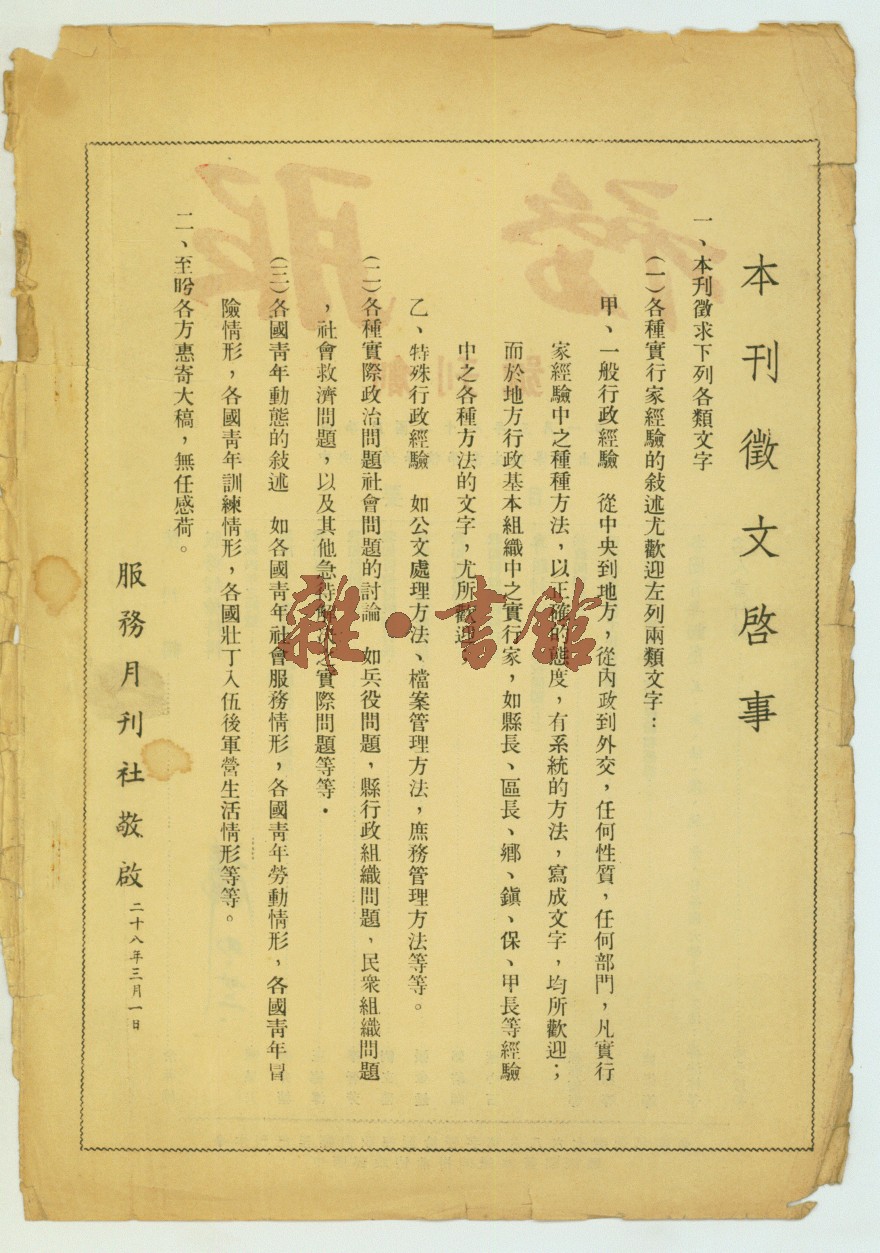 本刊徵文啓事
一、本刊徵求下列各類文字
(一)各種實行家經驗的敍述尤歡迎左列兩類文字：
甲、一般行政經驗　從中央到地方，從內政到外交，任何性質，任何部門，凡實行
家經驗中之種種方法，以正確的態度，有系統的方法，寫成文字，均所歡迎；
而於地方行政基本組織中之實行家，如縣長、區長、鄉、鎭、保、甲長等經驗
中之各種方法的文字，尤所歡迎。
乙、特殊行政經驗　如公文處理方法、檔案管理方法，庶務管理方法等等。
(二)各種實際政治問題社會問題的討論　如兵役問題，縣行政組織問題，民衆組織問題
，社會救濟問題，以及其他急待解決之實際問題等等．
(三)各國靑年動態的敍述　如各國靑年社會服務情形，各國靑年勞動情形，各國靑年冒
險情形，各國靑年訓練情形，各國壯丁入伍後軍營生活情形等等。
二、至盼各方惠寄大稿，無任感荷。
服務月刊社敬啟　二十八年三月一日
雜·書館
服務